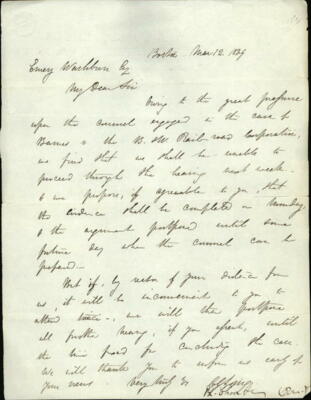 Boston Mar 12. 1839
Emory Washburn Esq
My Dear Sir
Owing to the great pressure
upon the counsel engaged in the case of
Barnes & the B. & W. Rail-road Corporation,
we find that we shall be unable to
proceed through the hearing next week.
& we propose, if agreeable to you, that
the evidence shall be completed on Monday,
& the argument postponed until some
future day when the counsel can be
prepared—
But if, by reason of your distance from
us it will be inconvenient to you to
attend twice, we will then postpone
all further hearing, if you assent, until
the time fixed for concluding the case.
We will thank you to inform us early of
your views Very truly yrs